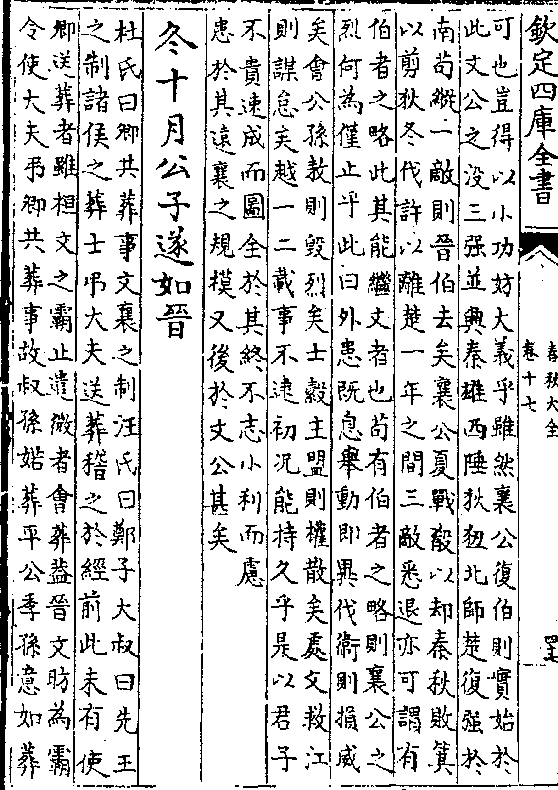 欽定四庫全書
春秋大全
卷十七
可也豈得以小功妨大義乎雖然襄公復伯則實始於
此文公之没三强並興秦雄西陲狄狃北師楚復强於
南苟縱一敵則晉伯去矣襄公夏戰殽以却秦秋敗箕
以剪狄冬伐許以離楚一年之間三敵悉退亦可謂有
伯者之略此其能繼文者也苟有伯者之略則襄公之
烈何為僅止乎此曰外患既息舉動即異伐衛則損威
矣會公孫敖則毀烈矣士縠主盟則權散矣處父救江
則謀怠矣越一二載事不逮初況能持久乎是以君子
不貴速成而圖全於其終不志小利而慮
患於其遠襄之規模又後於文公甚矣
冬十月公子遂如晉
杜氏曰卿共葬事文襄之制汪氏曰鄭子大叔曰先王
之制諸侯之葬士弔大夫送葬稽之於經前此未有使
卿送葬者雖桓文之霸止遣微者會葬葢晉文昉為霸
令使大夫弔卿共葬事故叔孫婼葬平公季孫意如葬